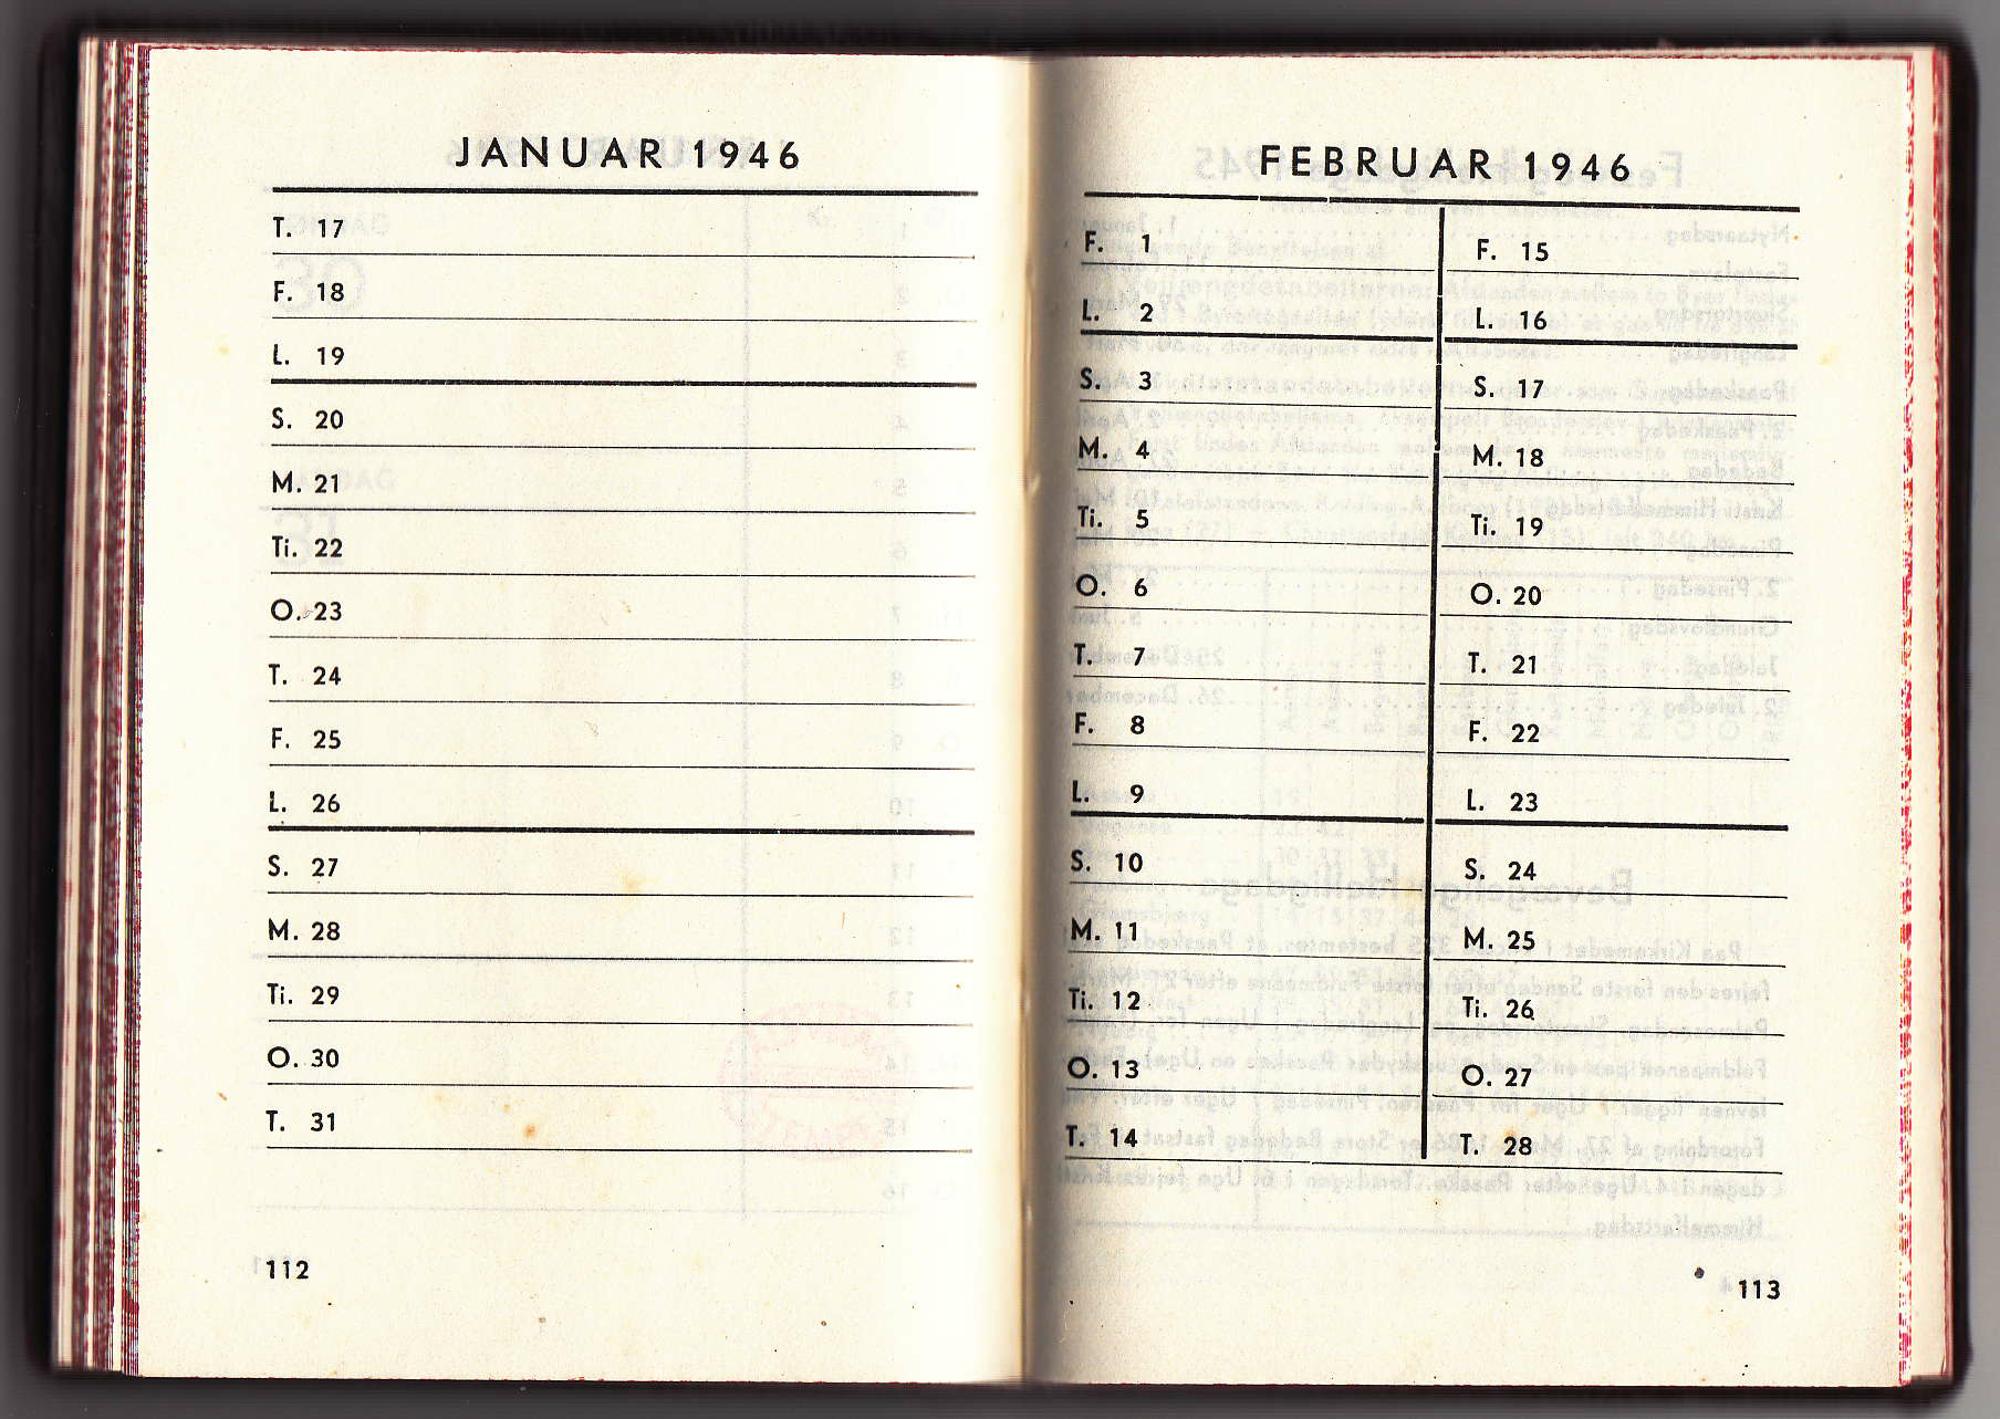 JANUAR 1946
T. 17
F. 18
L. 19
S. 20
M. 21
Ti. 22
O. 23
T. 24
F. 25
L. 26
S. 27
M. 28
Ti. 29
O. 30
T. 31
112
FEBRUAR 1946
F. 1
L. 2
S. 3
M. 4
Ti. 5
O. 6
T. 7
F. 8
L. 9
S. 10
M. 11
Ti. 12
O. 13
T. 14
F. 15
L. 16
S. 17
M. 18
Ti. 19
O. 20
T. 21
F. 22
L. 23
S. 24
M. 25
Ti. 26
O. 27
T. 28
113